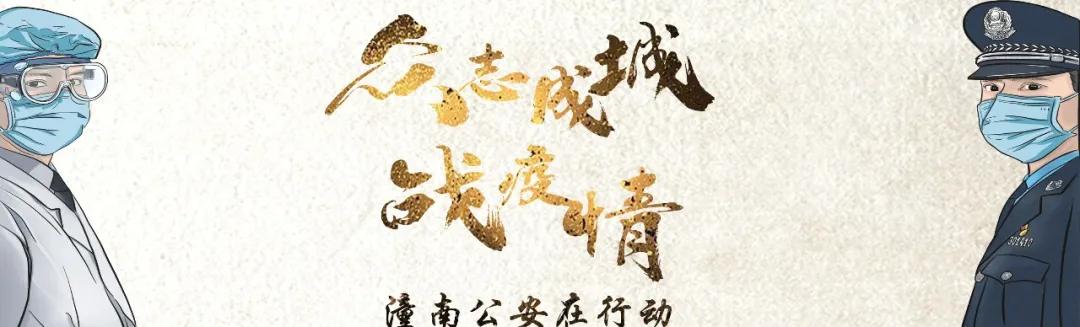 众志成城
战疫情
潼南公安在行动
301410